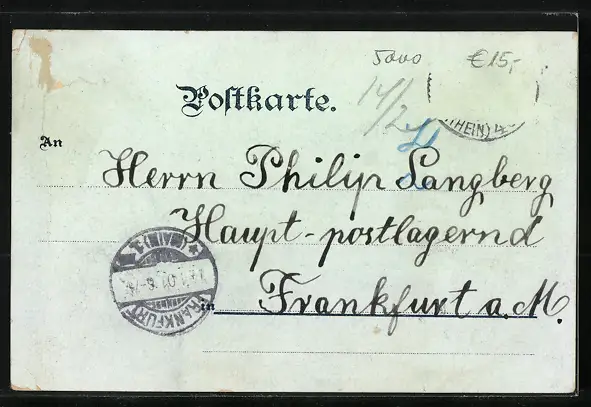 5000 €15,-
Postkarte. 14/2
(RHEIN) 4
An
Herrn Philip Langberg
Haupt-postlagernd
in Frankfurt a. M.
FRANKFURT (MAIN) 1.